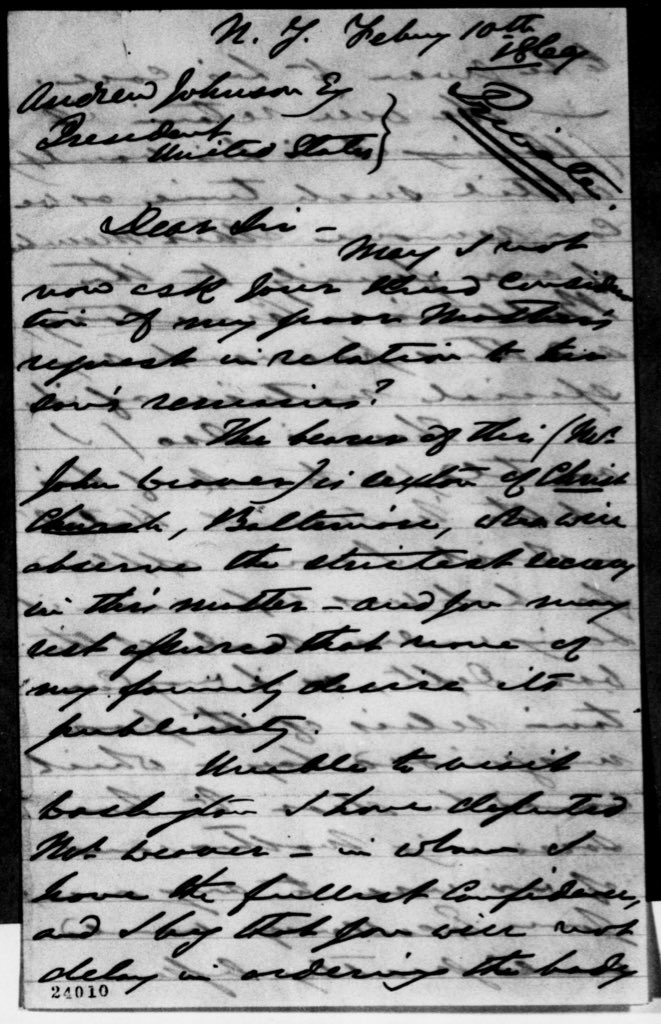 N. Y. Febuy 10th
1869
Andrew Johnson Esq
President
United States
Private.
Dear Sir –
May I not
now ask your kind considera
tion of my poor Mother's
request in relation to her
son's remains?
The bearer of this (Mr.
John Weaver) is sexton of Christ
Church, Baltimore, who will
observe the strictest secrecy
in this matter – and you may
rest assured that none of
my family desire its
publicity.
Unable to visit
Washington I have deputed
Mr. Weaver – in whom I
have the fullest confidence,
and I beg that you will not
delay in ordering the body
24010